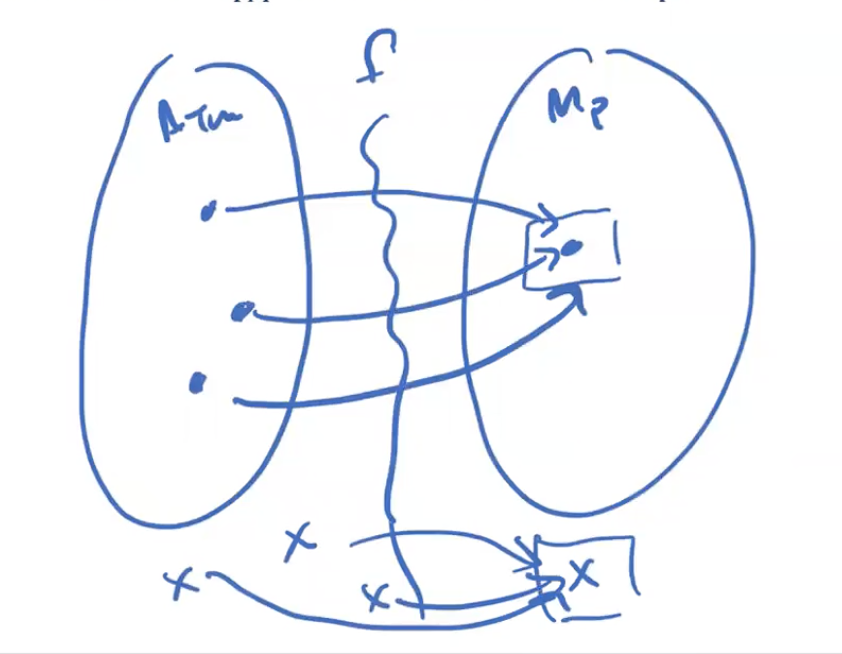 f
ATM
M_P
X
X
X
X